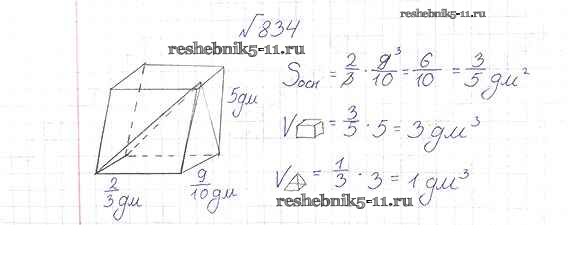 √834
reshebnik5-11.ru
reshebnik5-11.ru
Sосн = 2/3 · 9³/10 = 6/10 = 3/5 дм²
5дм
V = 3/5 · 5 = 3 дм³
V = 1/3 · 3 = 1 дм³
2/3 дм
9/10 дм
reshebnik5-11.ru